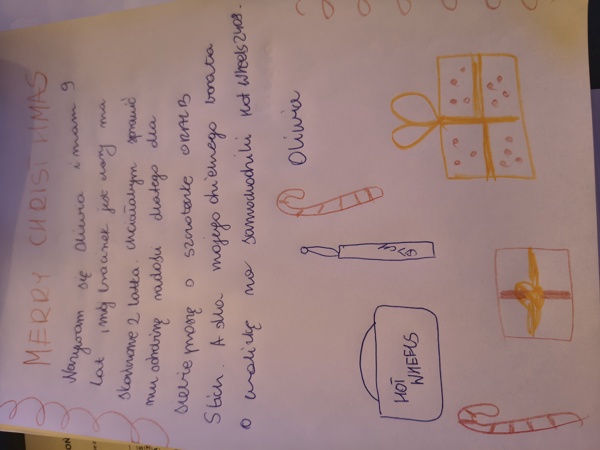 MERRY CHRISTMAS
Nazywam się Oliwia i mam 9
lat i mój braciszek jest chory ma
skończone 2 latka. chciałabym sprawić
mu odrobinę radości dlatego dla
siebie proszę o szczoteczkę ORALB
Stich. A dla mojego chorego brata
o walizkę na samochodziki Hot Wheels
Oliwia
HOT
WHEELS